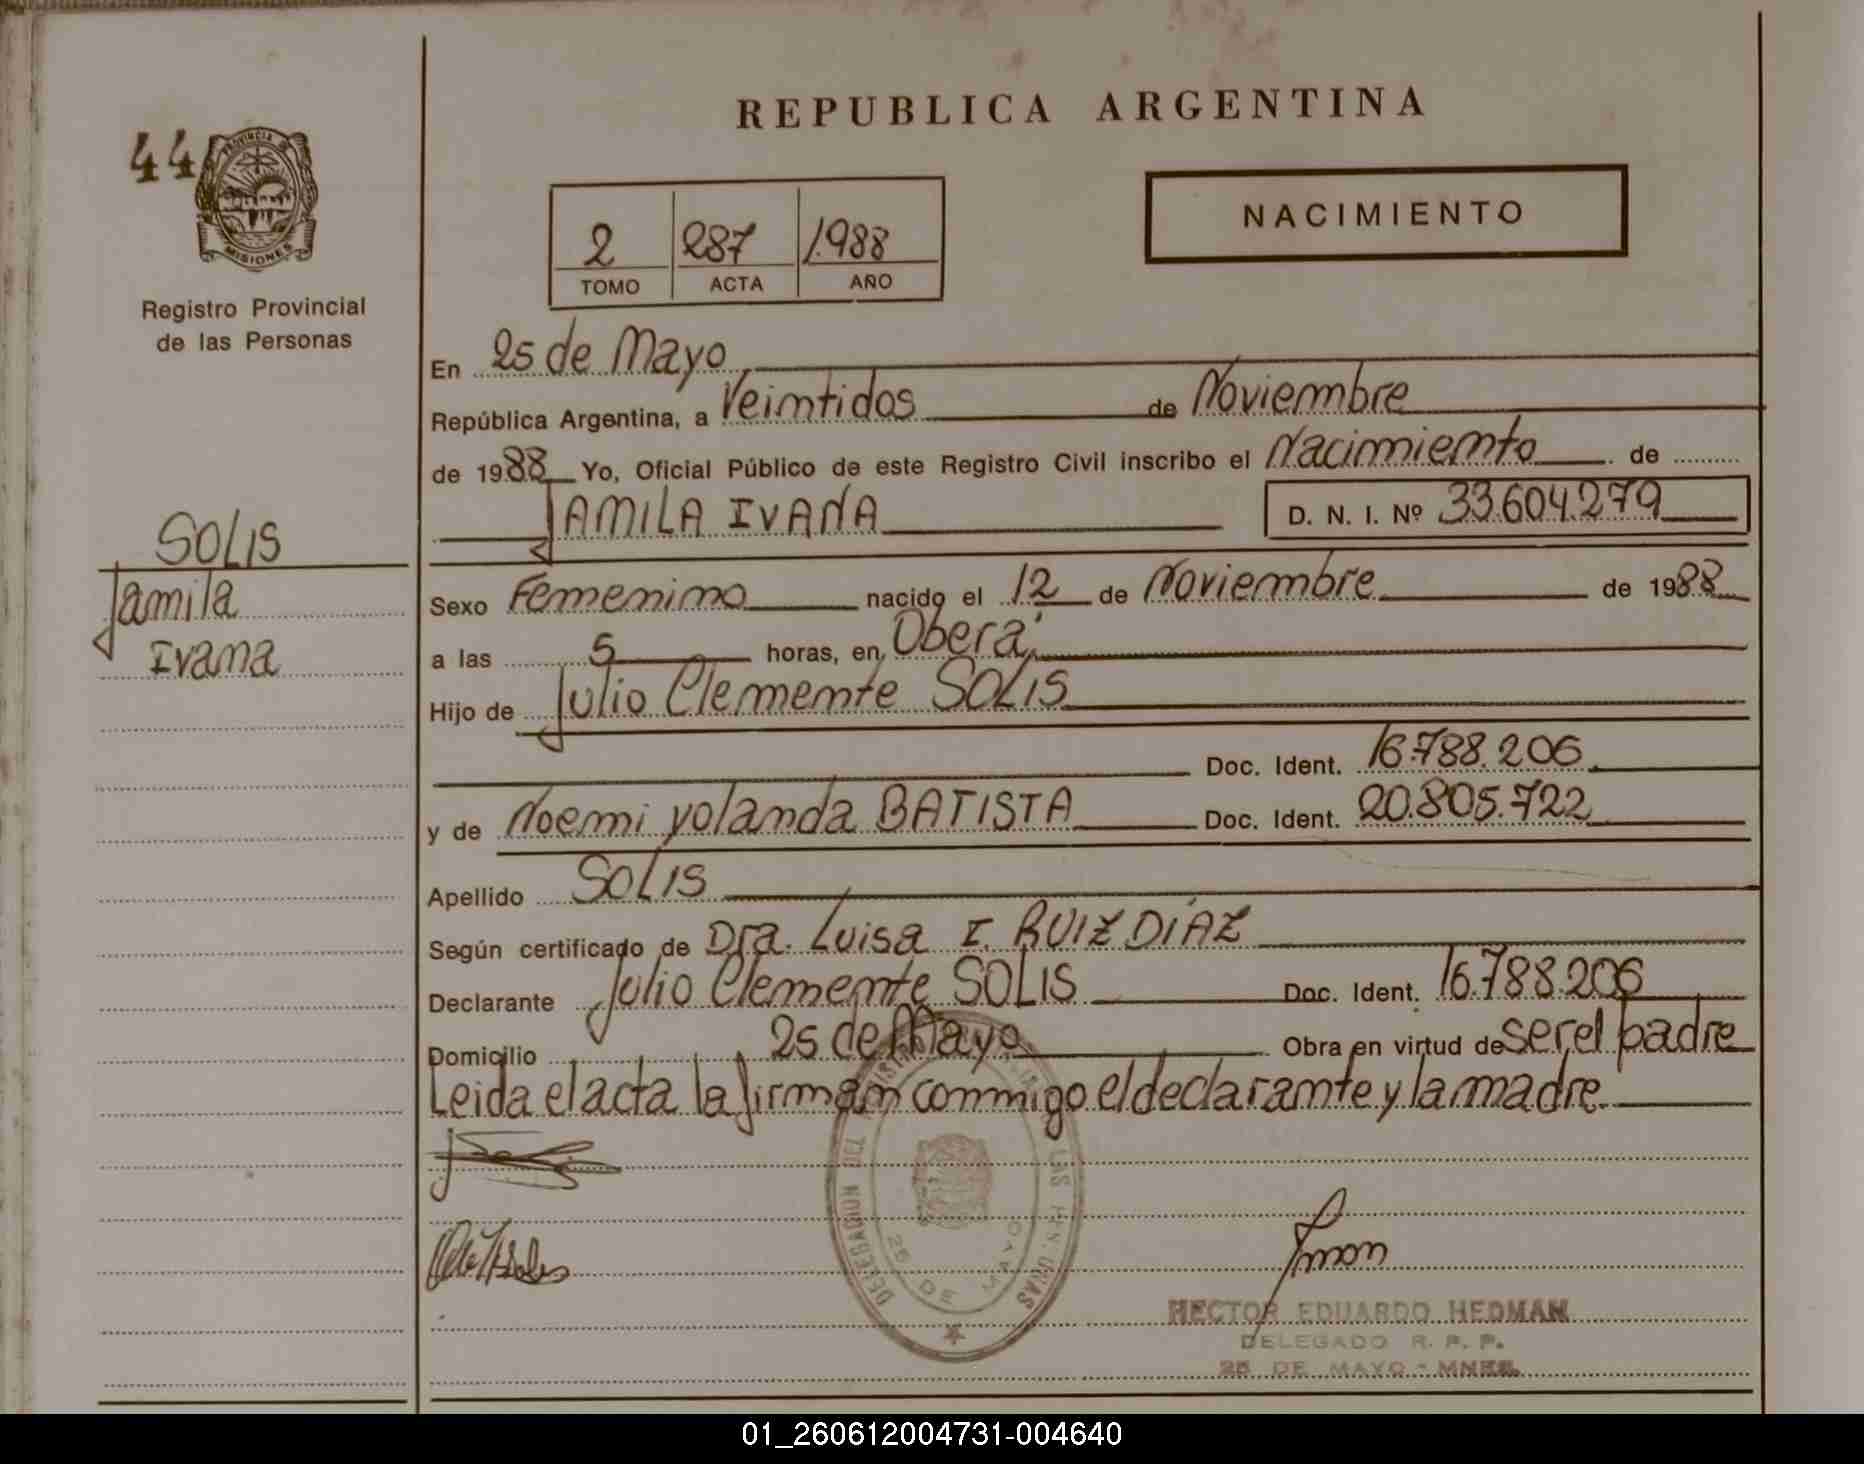 REPUBLICA ARGENTINA
44
PROVINCIA DE
MISIONES
Registro Provincial
de las Personas
NACIMIENTO
2 287 1.988
TOMO ACTA AÑO
En 25 de Mayo
República Argentina, a Veintidos de Noviembre
de 1988 Yo, Oficial Público de este Registro Civil inscribo el Nacimiento de
JAMILA IVANA D. N. I. Nº 33.604.279
SOLIS
Jamila
Ivana
Sexo Femenino nacido el 12 de Noviembre de 1988
a las 5 horas, en Oberá
Hijo de Julio Clemente SOLIS
Doc. Ident. 16.788.206
y de Noemi yolanda BATISTA Doc. Ident. 20.805.722
Apellido SOLIS
Según certificado de Dra. Luisa I. RUIZ DÍAZ
Declarante Julio Clemente SOLIS Doc. Ident. 16.788.206
Domicilio 25 de Mayo Obra en virtud de ser el padre
Leida el acta la firman conmigo el declarante y la madre
DELEGACION DEL LAS
25 DE MAYO
HECTOR EDUARDO HEDMAN
DELEGADO R. P. P.
25 DE MAYO - MNES.
01_260612004731-004640